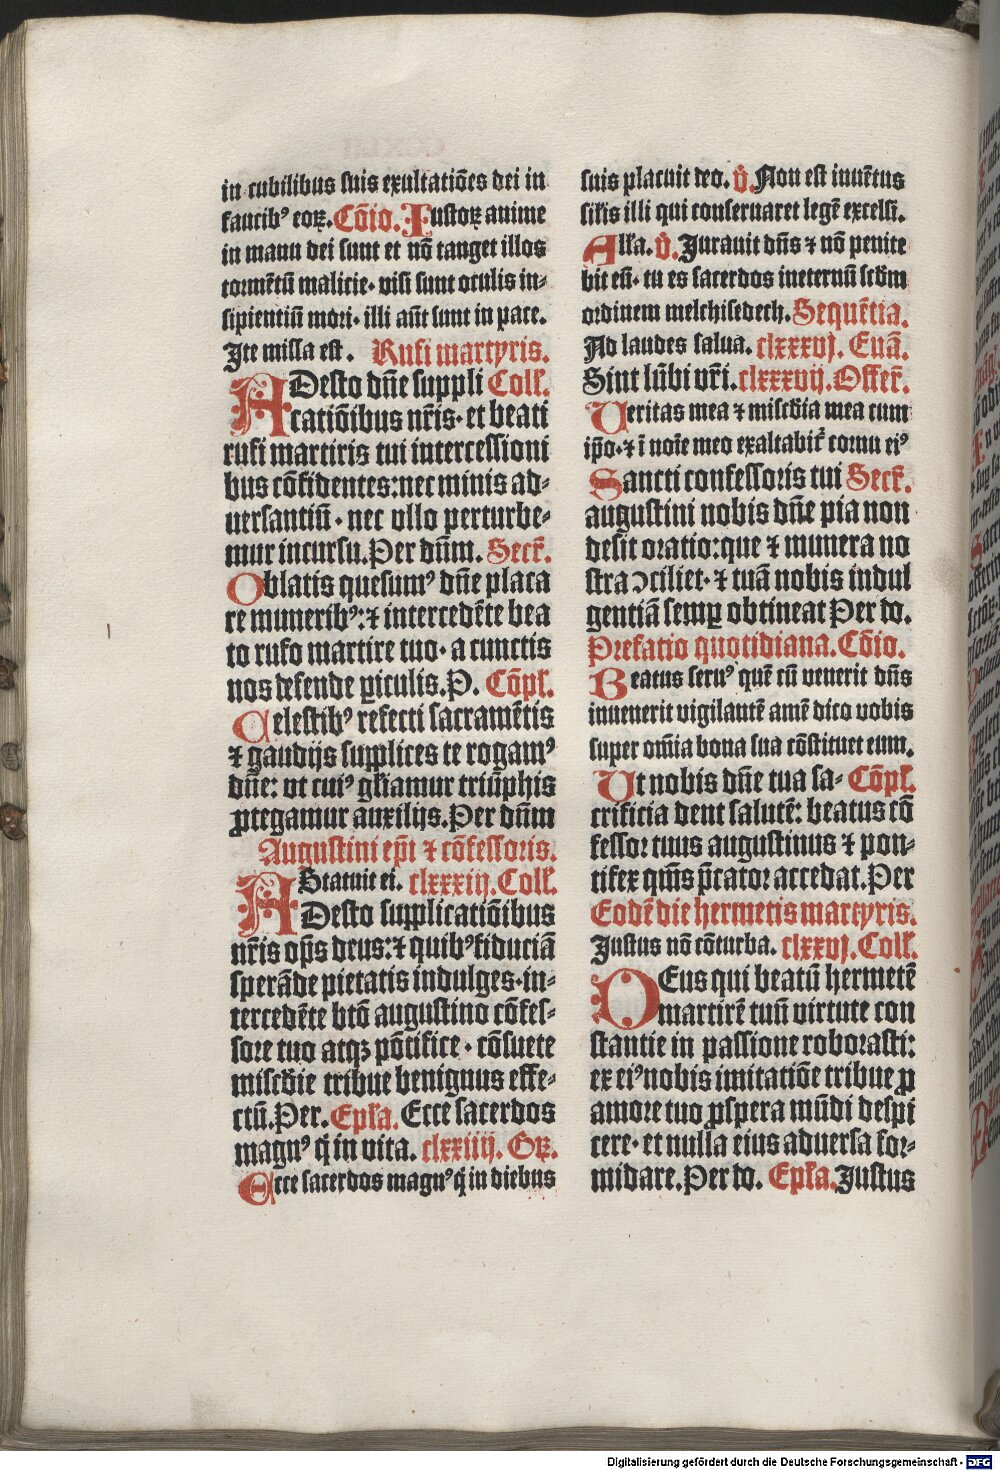 in cubilibus suis exultatiões dei in
faucibꝰ eoꝝ. Cõio. Iustoꝝ anime
in manu dei sunt et nõ tanget illos
tormẽtũ malicie· visi sunt oculis in-
sipientiũ mori· illi aũt sunt in pace.
Ite missa est. Rufi martyris.
ADesto dñe suppli Coll̃.
catiõibus nr̃is· et beati
rufi martiris tui intercessioni
bus cõfidentes: nec minis ad-
uersantiũ· nec vllo perturbe-
mur incursu. Per dñm. Secr̃.
Oblatis quesumꝰ dñe placa
re muneribꝰ: ⁊ intercedẽte bea
to rufo martire tuo· a cunctis
nos defende ꝑiculis. P. Cõpl̃.
Celestibꝰ refecti sacramẽtis
⁊ gaudijs supplices te rogamꝰ
dñe: vt cuiꝰ gl̃iamur triũphis
ꝓtegamur auxilijs. Per dñm
Augustini ep̃i ⁊ cõfessoris.
Statuit ei. clxxxiij. Coll̃.
ADesto supplicatiõibus
nr̃is op̃s deus: ⁊ quibꝰ fiduciã
sperãde pietatis indulges· in-
tercedẽte btõ augustino cõfes-
sore tuo atqꝫ põtifice· cõsuete
mis̃cdie tribue benignus effe-
ctũ. Per. Epl̃a. Ecce sacerdos
magnꝰ q̃ in vita. clxxiiij. Gꝝ.
Ecce sacerdos magnꝰ q̃ in diebus
suis placuit deo. v̊. Non est inuẽtus
sil̃is illi qui conseruaret legẽ excelsi.
All̃a. v̊. Jurauit dñs ⁊ nõ penite
bit eũ· tu es sacerdos ineternũ scd̃m
ordinem melchisedech. Sequẽtia.
Ad laudes salua. clxxxvj. Euã.
Sint lũbi vr̃i. clxxxvij. Offer̃.
Veritas mea ⁊ mis̃cdia mea cum
ip̃o· ⁊ ĩ noĩe meo exaltabit̃ cornu eiꝰ
Sancti confessoris tui Secr̃.
augustini nobis dñe pia non
desit oratio: que ⁊ munera no
stra ↄciliet· ⁊ tuã nobis indul
gentiã semꝑ obtineat Per do.
Prefatio quotidiana. Cõio.
Beatus seruꝰ quẽ cũ venerit dñs
inuenerit vigilantẽ amẽ dico vobis
super om̃ia bona sua cõstituet eum.
Vt nobis dñe tua sa- Cõpl̃.
crificia dent salutẽ: beatus cõ
fessor tuus augustinus ⁊ pon-
tifex qm̃s p̃cator accedat. Per
Eodẽ die hermetis martyris.
Justus nõ cõturba. clxxvj. Coll̃.
DEus qui beatũ hermetẽ
martirẽ tuũ virtute con
stantie in passione roborasti:
ex eiꝰ nobis imitatiõe tribue ꝓ
amore tuo ꝓspera mũdi despi
cere· et nulla eius aduersa for-
midare. Per do. Epl̃a. Justus
Digitalisierung gefördert durch die Deutsche Forschungsgemeinschaft - DFG